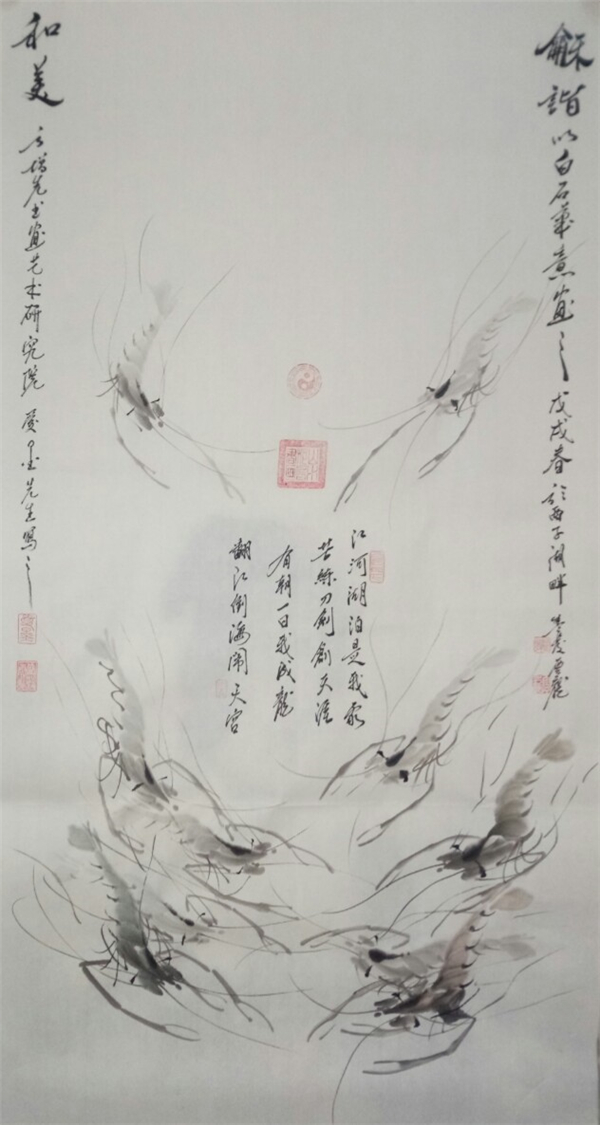 龢諧以白石筆意畫之 戊戌春於西子湖畔
江河湖泊是我家
苦練刀劍創天涯
有朝一日我成龍
翻江倒海闹天宫
和美 方增先书畫艺术研究院 墨先生寫之